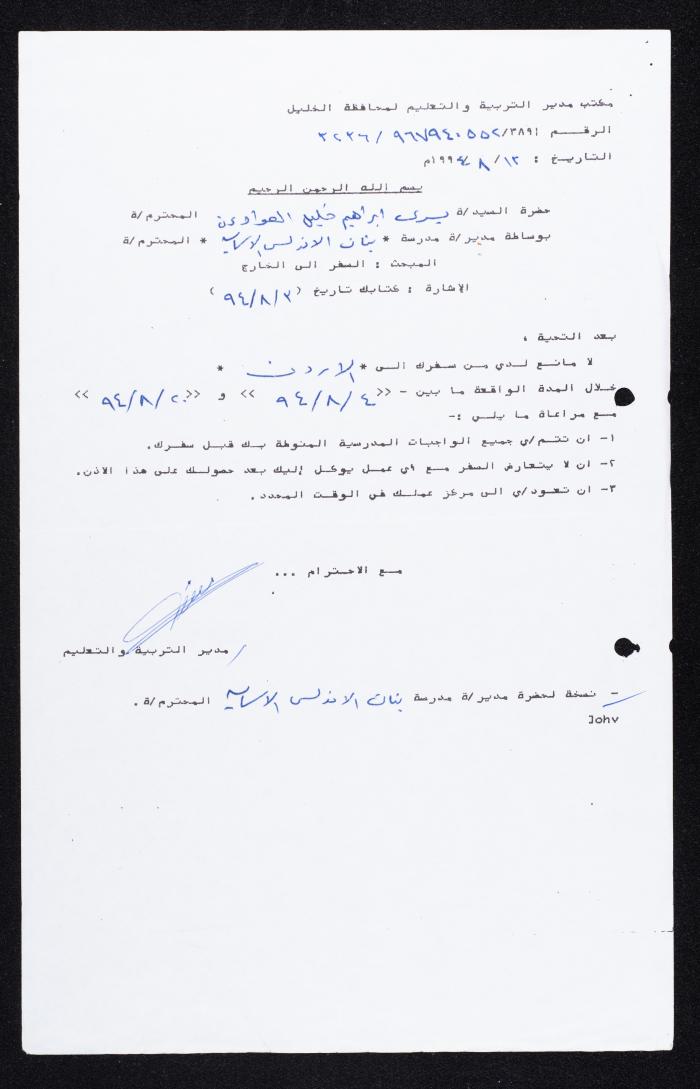 مكتب مدير التربية والتعليم لمحافظة الخليل
الرقم ٣٨٩١/ ٩٦٧٩٤٠٥٥٢ / ٣٢٣٦
التاريخ : ١٣ / ٨ / ١٩٩٤م
بسم الله الرحمن الرحيم
حضرة السيد/ة يسرى ابراهيم خليل الهواوين المحترم/ة
بوساطة مدير/ة مدرسة * بنات الاندلس الاساسية * المحترم/ة
المبحث : السفر الى الخارج
الاشارة : كتابك تاريخ ( ٩٤/٨/٣ )
بعد التحية ،
لا مانع لدي من سفرك الى * الاردن *
خلال المدة الواقعة ما بين - << ٩٤/٨/٤ >> و << ٩٤/٨/٢٠ >>
مع مراعاة ما يلي :-
١- ان تتم/ي جميع الواجبات المدرسية المنوطة بك قبل سفرك.
٢- ان لا يتعارض السفر مع اي عمل يوكل إليك بعد حصولك على هذا الاذن.
٣- ان تعود/ي الى مركز عملك في الوقت المحدد .
مع الاحترام ...
/ مدير التربية والتعليم
- نسخة لحضرة مدير/ة مدرسة بنات الاندلس الاساسية المحترم/ة .
Johv